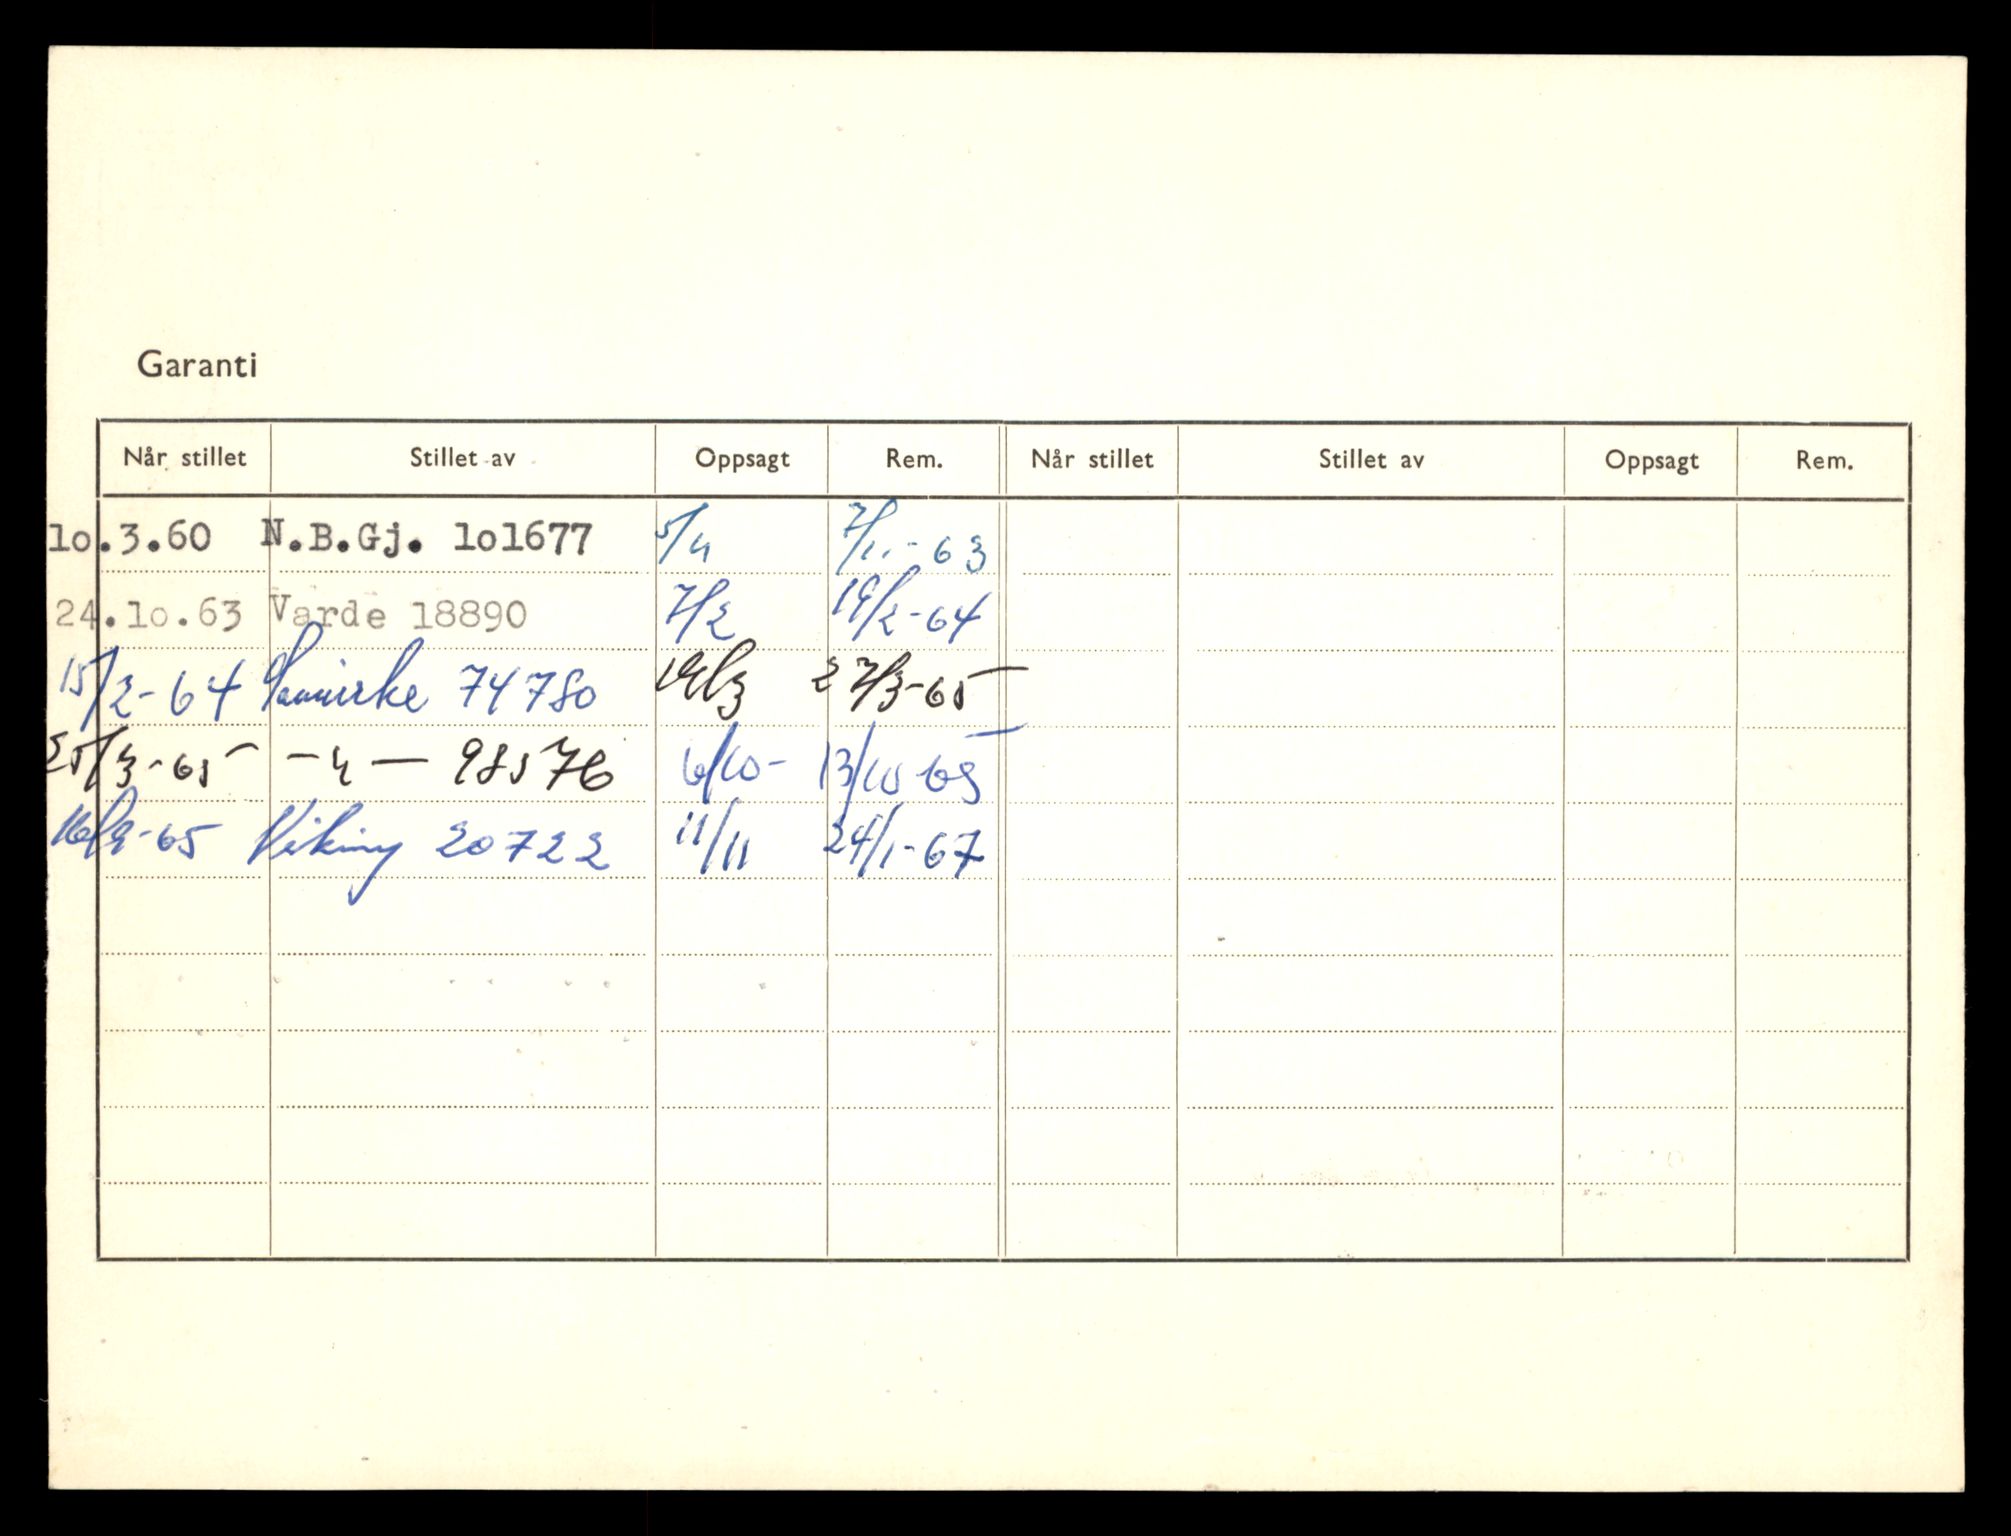 Garanti
Når stillet Stillet av Oppsagt Rem. Når stillet Stillet av Oppsagt Rem.
lo.3.60 N.B.Gj. lol677 5/11 7/11-63
24.lo.63 Varde 18890 7/2 19/2-64
15/2-64 74780 19/3 27/3-65
25/3-65 -"- 98576 6/10- 13/10-65
16/9-65 Viking 20722 11/11 24/1-67